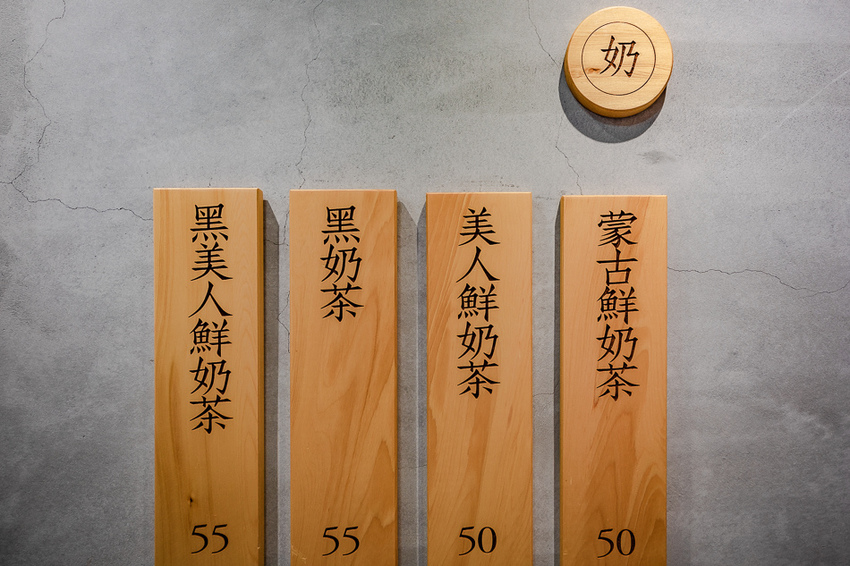 奶
蒙古鮮奶茶
50
美人鮮奶茶
50
黑奶茶
55
黑美人鮮奶茶
55